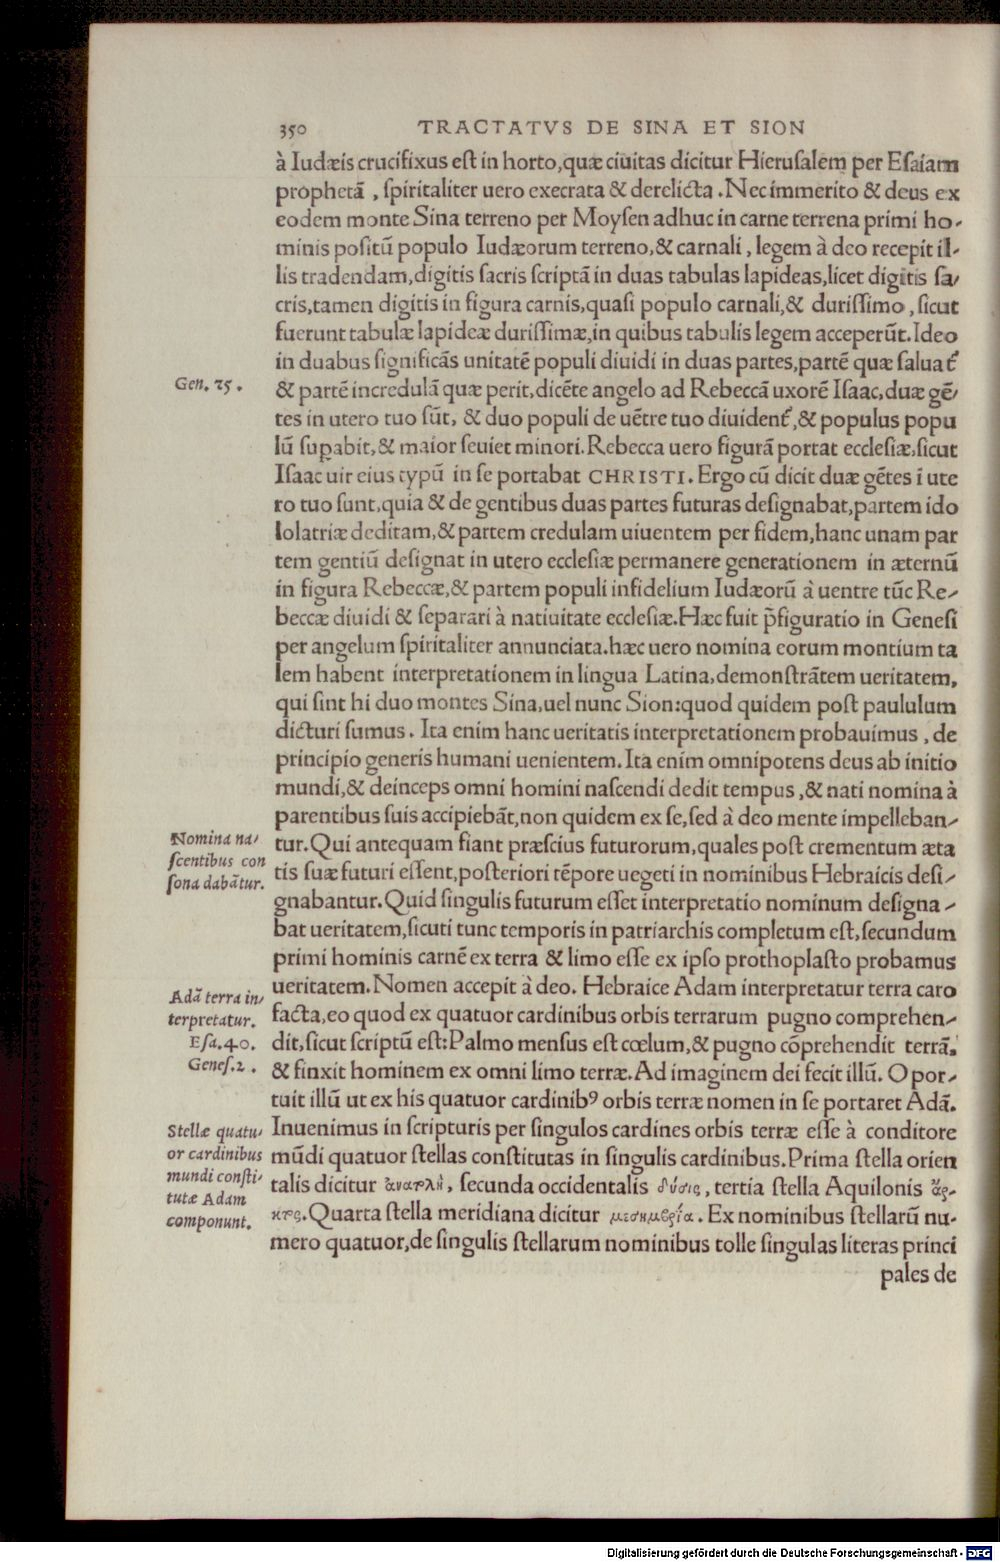 350 TRACTATVS DE SINA ET SION
à Iudæis crucifixus est in horto,quæ ciuitas dicitur Hierusalem per Esaiam
prophetā, spiritaliter uero execrata & derelicta. Nec immerito & deus ex
eodem monte Sina terreno per Moysen adhuc in carne terrena primi ho-
minis positū populo Iudæorum terreno,& carnali, legem à deo recepit il-
lis tradendam,digitis sacris scriptā in duas tabulas lapideas,licet digitis sa-
cris,tamen digitis in figura carnis,quasi populo carnali,& durissimo, sicut
fuerunt tabulæ lapideæ durissimæ,in quibus tabulis legem acceperūt.Ideo
in duabus significās unitatē populi diuidi in duas partes,partē quæ saluat̄
Gen. 25.
& partē incredulā quæ perit,dicēte angelo ad Rebeccā uxorē Isaac,duæ gē-
tes in utero tuo sūt, & duo populi de uētre tuo diuident̄,& populus popu
lū suꝑabit,& maior seuiet minori.Rebecca uero figurā portat ecclesiæ,sicut
Isaac uir eius typū in se portabat CHRISTI. Ergo cū dicit duæ gētes ī ute
ro tuo sunt,quia & de gentibus duas partes futuras designabat,partem ido
lolatriæ deditam,& partem credulam uiuentem per fidem,hanc unam par
tem gentiū designat in utero ecclesiæ permanere generationem in æternū
in figura Rebeccæ,& partem populi infidelium Iudæorū à uentre tūc Re-
beccæ diuidi & separari à natiuitate ecclesiæ.Hæc fuit p̄figuratio in Genesi
per angelum spiritaliter annunciata.hæc uero nomina eorum montium ta
lem habent interpretationem in lingua Latina,demonstrātem ueritatem,
qui sint hi duo montes Sina,uel nunc Sion:quod quidem post paululum
dicturi sumus. Ita enim hanc ueritatis interpretationem probauimus, de
principio generis humani uenientem.Ita enim omnipotens deus ab initio
mundi,& deinceps omni homini nascendi dedit tempus,& nati nomina à
parentibus suis accipiebāt,non quidem ex se,sed à deo mente impelleban-
Nomina na-
scentibus con
sona dabātur.
tur.Qui antequam fiant præscius futurorum,quales post crementum æta
tis suæ futuri essent,posteriori tēpore uegeti in nominibus Hebraicis desi-
gnabantur.Quid singulis futurum esset interpretatio nominum designa-
bat ueritatem,sicuti tunc temporis in patriarchis completum est,secundum
primi hominis carnē ex terra & limo esse ex ipso prothoplasto probamus
Adā terra in-
terpretatur.
Esa.40.
Genes.2.
ueritatem.Nomen accepit à deo. Hebraice Adam interpretatur terra caro
facta,eo quod ex quatuor cardinibus orbis terrarum pugno comprehen-
dit,sicut scriptū est:Palmo mensus est cœlum,& pugno cōprehendit terrā,
& finxit hominem ex omni limo terræ.Ad imaginem dei fecit illū. Opor-
tuit illū ut ex his quatuor cardinibꝰ orbis terræ nomen in se portaret Adā.
Stellæ quatu-
or cardinibus
mundi consti-
tutæ Adam
componunt.
Inuenimus in scripturis per singulos cardines orbis terræ esse à conditore
mūdi quatuor stellas constitutas in singulis cardinibus.Prima stella orien
talis dicitur ἀνατλὴ, secunda occidentalis δύσις, tertia stella Aquilonis ἄρ-
κτς.Quarta stella meridiana dicitur μεσημβρία. Ex nominibus stellarū nu-
mero quatuor,de singulis stellarum nominibus tolle singulas literas princi
pales de
Digitalisierung gefördert durch die Deutsche Forschungsgemeinschaft - DFG